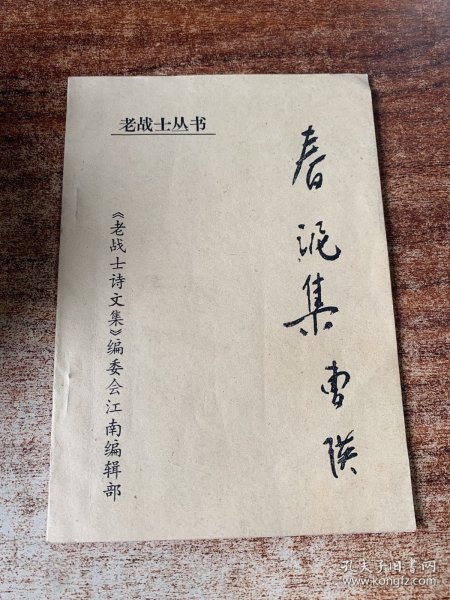 老战士丛书
春泥集 曹瑛
《老战士诗文集》编委会江南编辑部
孔夫子旧书网